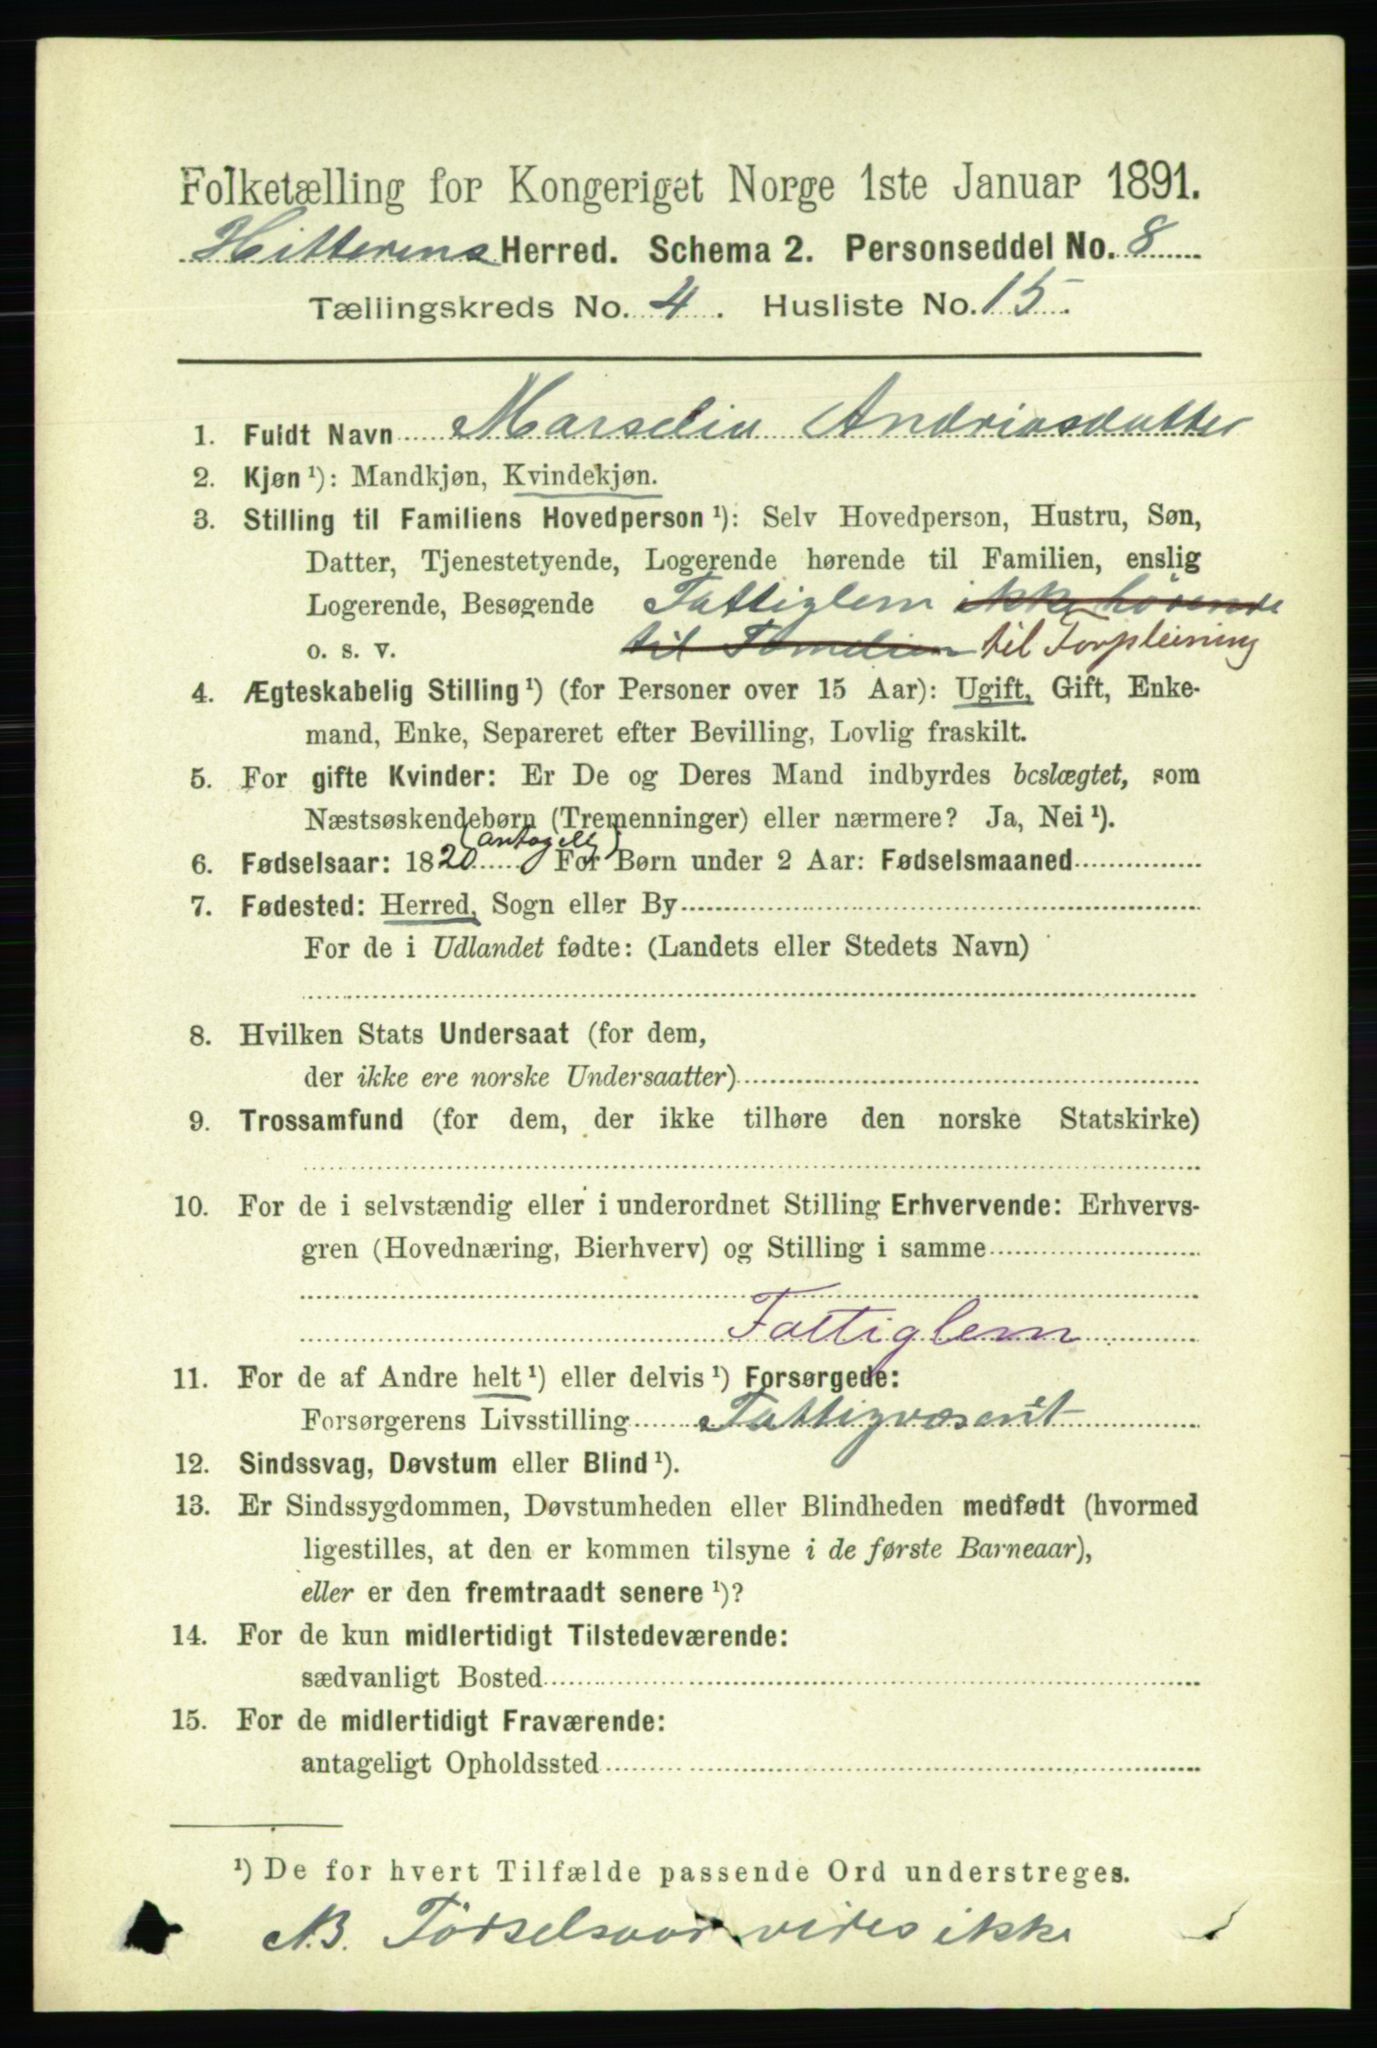 Folketælling for Kongeriget Norge 1ste Januar 1891.
Hitterens Herred. Schema 2. Personseddel No. 8
Tællingskreds No. 4. Husliste No. 15.
1. Fuldt Navn Marselia Andriasdatter
2. Kjøn ¹): Mandkjøn, Kvindekjøn.
3. Stilling til Familiens Hovedperson ¹): Selv Hovedperson, Hustru, Søn,
Datter, Tjenestetyende, Logerende hørende til Familien, enslig
Logerende, Besøgende Fattiglem ikke hørende
o. s. v. til Familien til Forpleining
4. Ægteskabelig Stilling ¹) (for Personer over 15 Aar): Ugift, Gift, Enke-
mand, Enke, Separeret efter Bevilling, Lovlig fraskilt.
5. For gifte Kvinder: Er De og Deres Mand indbyrdes beslægtet, som
Næstsøskendebørn (Tremenninger) eller nærmere? Ja, Nei ¹).
(antagelig)
6. Fødselsaar: 1820 For Børn under 2 Aar: Fødselsmaaned
7. Fødested: Herred, Sogn eller By
For de i Udlandet fødte: (Landets eller Stedets Navn)
8. Hvilken Stats Undersaat (for dem,
der ikke ere norske Undersaatter)
9. Trossamfund (for dem, der ikke tilhøre den norske Statskirke)
10. For de i selvstændig eller i underordnet Stilling Erhvervende: Erhvervs-
gren (Hovednæring, Bierhverv) og Stilling i samme
Fattiglem
11. For de af Andre helt ¹) eller delvis ¹) Forsørgede:
Forsørgerens Livsstilling Fattigvæsenet
12. Sindssvag, Døvstum eller Blind ¹).
13. Er Sindssygdommen, Døvstumheden eller Blindheden medfødt (hvormed
ligestilles, at den er kommen tilsyne i de første Barneaar),
eller er den fremtraadt senere ¹)?
14. For de kun midlertidigt Tilstedeværende:
sædvanligt Bosted
15. For de midlertidigt Fraværende:
antageligt Opholdssted
¹) De for hvert Tilfælde passende Ord understreges.
NB. Fødselsaar vides ikke